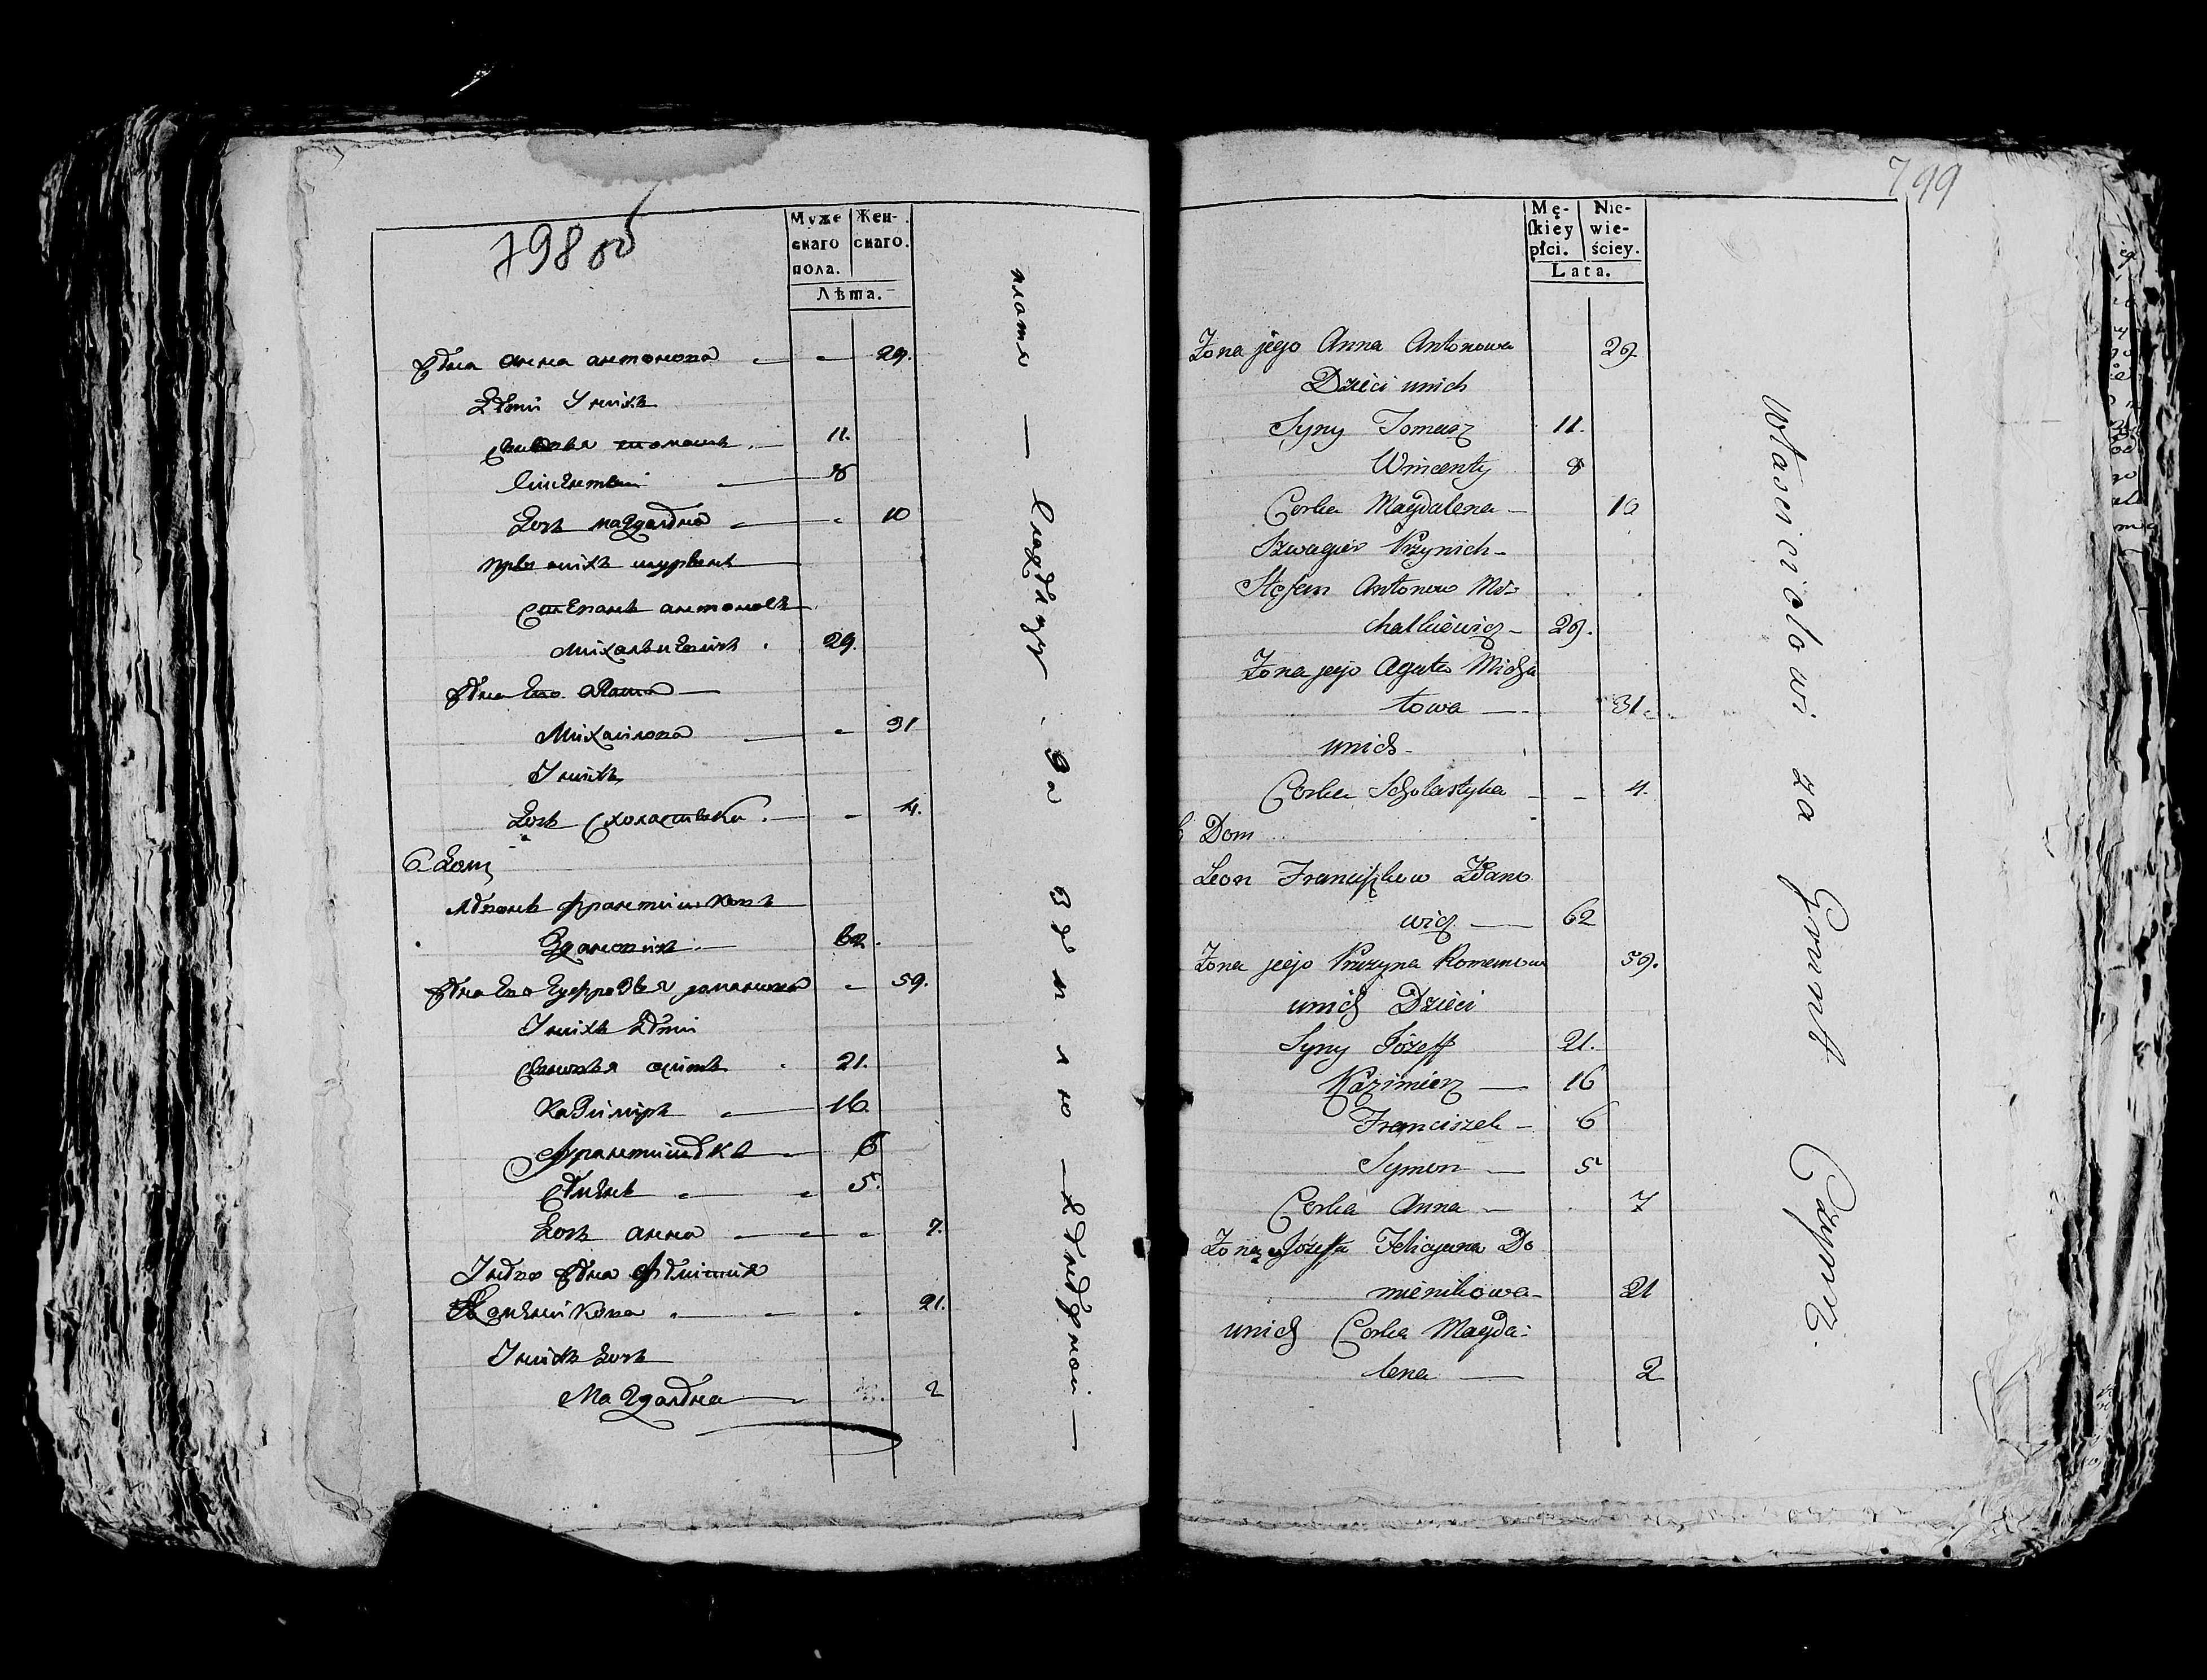 798 об
Муже Жен-
скаго скаго.
пола.
Лѣта.
Жена анна антонова 29.
Дети У нихъ
Сыновья томашъ 11.
Винсенты 8
Дочь магдалена 10
При нихъ шуринъ
Степанъ антоновъ
Михалькевичъ 29.
Жена Его агата
Михаилова 31
У нихъ
Дочь Схоластыка 4.
6 Дом
Леонъ францишковъ
Здановичъ 62.
Жена Его романова 59.
У нихъ Дети
Сыновья осипъ 21.
Казимиръ 16.
францишекъ 6
Семенъ 5.
Дочь анна 7.
Жена
Доменикова 21.
У нихъ Дочь
Магдалена 2
плотя — Владелцу за землю —
799
Mę- Nie-
ſkiey wie-
płci. ściey.
Lata.
Zona jego Anna Antonowa 29
Dzieci unich
Syny Tomasz 11.
Wincenty 8
Corka Magdalena — 10
Szwagier Przynich —
Stefan Antonow Mi-
chalkiewicz — 29.
Zona jego Agata Micha
łowa — 31
unich —
Corka Scholastyka — 4.
6 Dom
Leon Franciszkow Zdano
wicz — 62
Zona jego Pruzyna Romanowa 59.
unich Dzieci
Syny Józeff 21.
Kazimierz — 16
Franciszek — 6
Symon — 5
Corka Anna — 7
Zona Józeffa Felicyana Do
minikowa — 21
unich Corka Magda-
lena — 2
Własicicielowi za Grunt Czynsz.